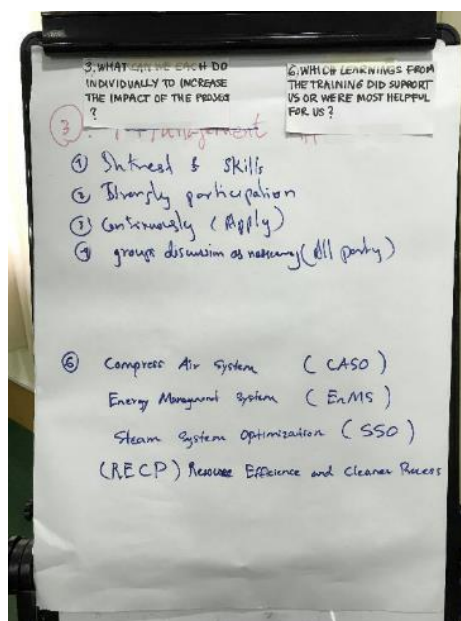 3. WHAT CAN WE EACH DO
INDIVIDUALLY TO INCREASE
THE IMPACT OF THE PROJECT
?
6. WHICH LEARNINGS FROM
THE TRAINING DID SUPPORT
US OR WERE MOST HELPFUL
FOR US?
3
① Intrest & Skills
② participation
③ Continuously (Apply)
④ groups discussion as (All party)
⑥ Compress Air System (CASO)
Energy System (EnMS)
Steam System Optimization (SSO)
(RECP) Resource Efficience and Cleaner